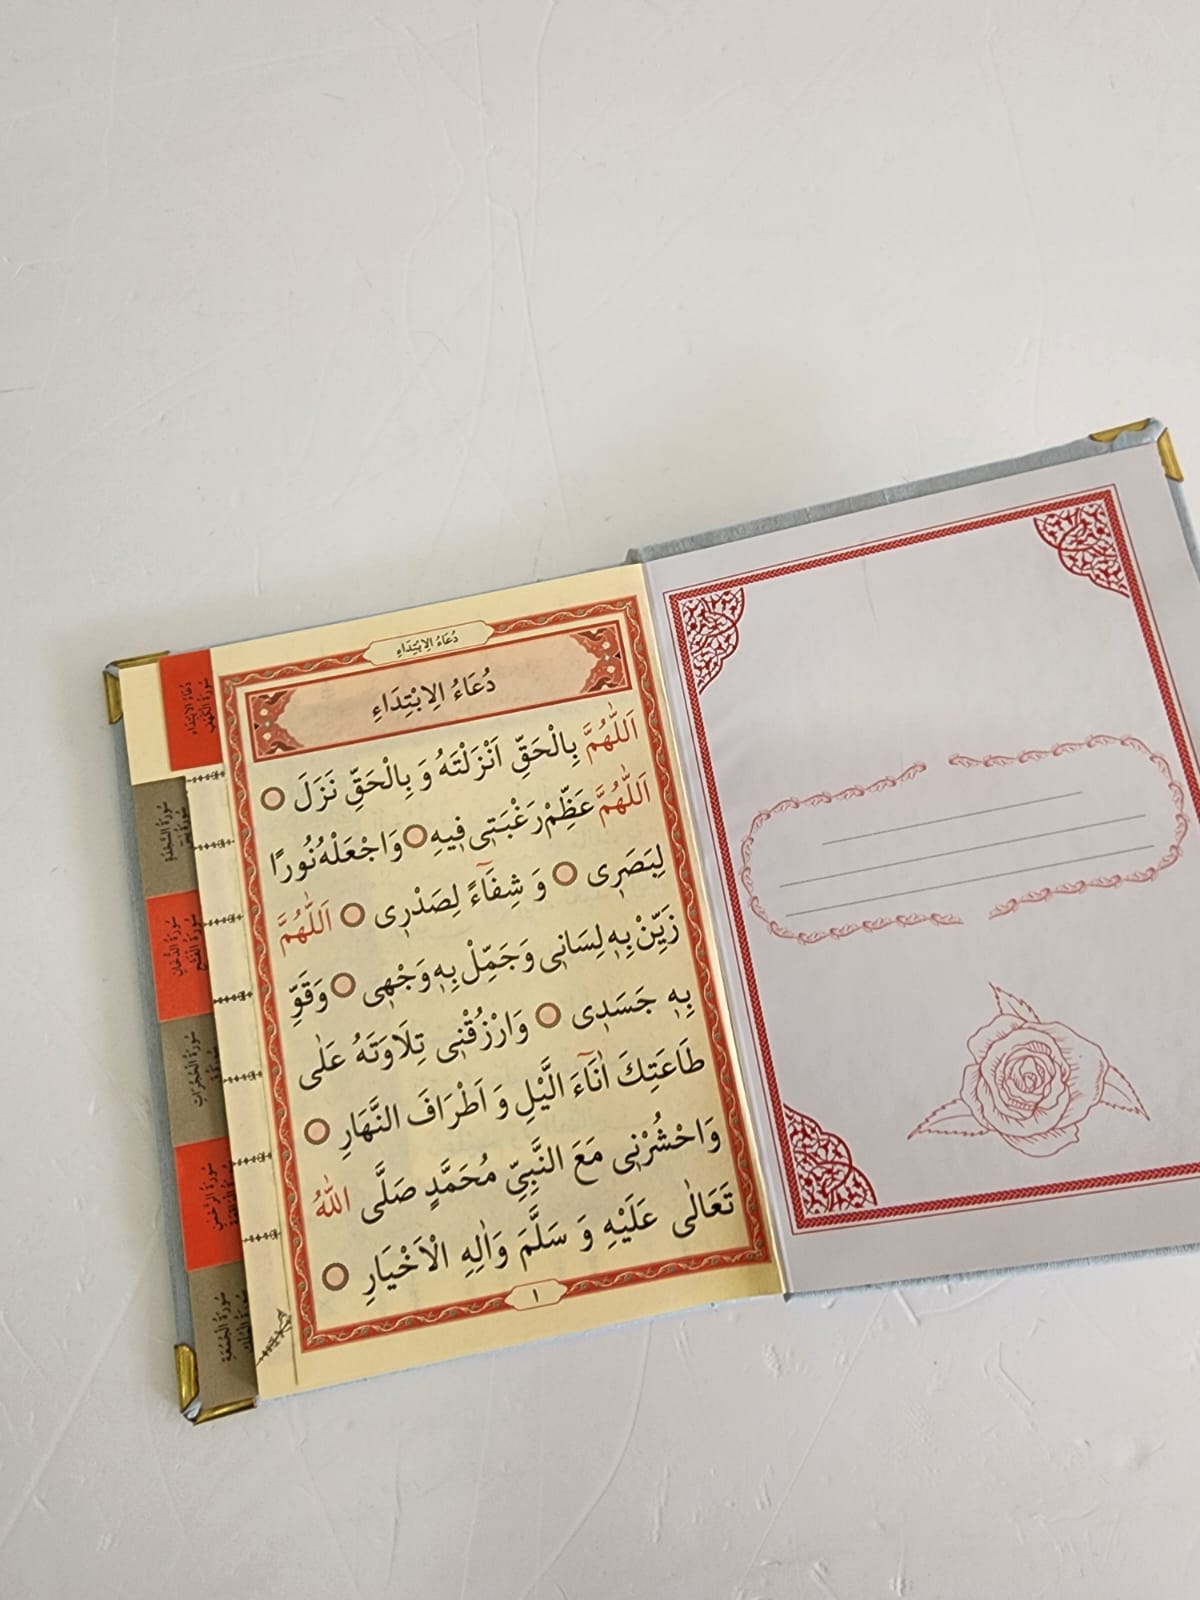 دُعَاءُ الِابْتِدَاءِ
دُعَاءُ الِابْتِدَاءِ
اَللّٰهُمَّ بِالْحَقِّ اَنْزَلْتَهُ وَ بِالْحَقِّ نَزَلَ
اَللّٰهُمَّ عَظِّمْ رَغْبَتٖى فٖيهِ وَاجْعَلْهُ نُورًا
لِبَصَرٖى وَ شِفَٓاءً لِصَدْرٖى اَللّٰهُمَّ
زَيِّنْ بِهٖ لِسَانٖى وَجَمِّلْ بِهٖ وَجْهٖى وَقَوِّ
بِهٖ جَسَدٖى وَارْزُقْنٖى تِلَاوَتَهُ عَلٰى
طَاعَتِكَ اٰنَٓاءَ الَّيْلِ وَ اَطْرَافَ النَّهَارِ
وَاحْشُرْنٖى مَعَ النَّبِيِّ مُحَمَّدٍ صَلَّى اللّٰهُ
تَعَالٰى عَلَيْهِ وَ سَلَّمَ وَاٰلِهِ الْاَخْيَارِ
١
دُعَاءُ الِابْتِدَاءِ
سُورَةُ الْكَهْفِ
سُورَةُ السَّجْدَةِ
سُورَةُ الدُّخَانِ
سُورَةُ الْفَتْحِ
سُورَةُ الْحُجُرَاتِ
سُورَةُ الرَّحْمٰنِ
سُورَةُ الْجُمُعَةِ
سُورَةُ الْمُلْكِ